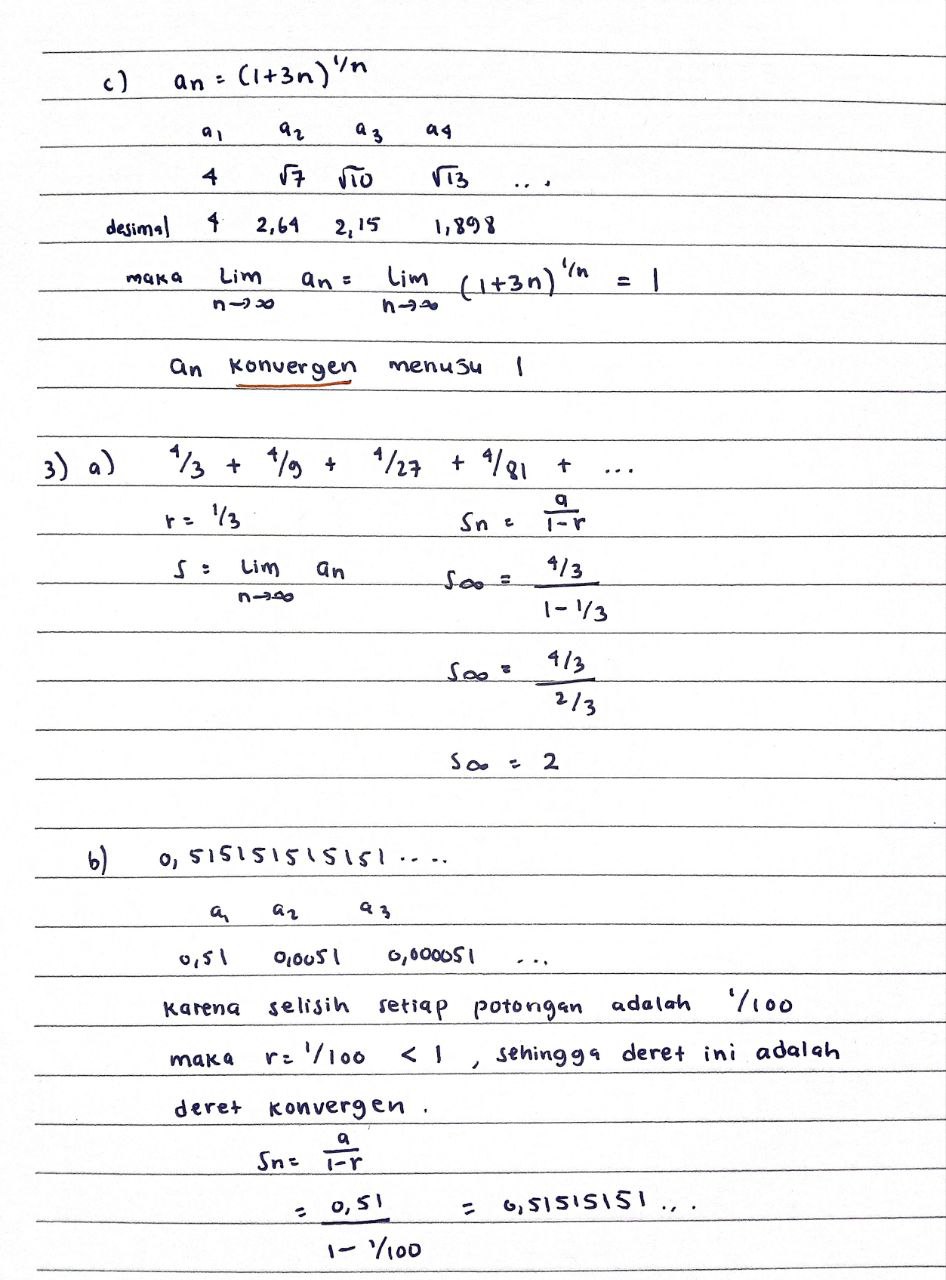 c) an = (1+3n)^1/n
a1 a2 a3 a4
4 √7 √10 √13 ...
desimal 4 2,64 2,15 1,898
maka Lim n→∞ an = Lim n→∞ (1+3n)^1/n = 1
an konvergen menuju 1
3) a) 4/3 + 4/9 + 4/27 + 4/81 + ...
r = 1/3 Sn = a/1-r
S = Lim n→∞ an S∞ = 4/3 / 1-1/3
S∞ = 4/3 / 2/3
S∞ = 2
b) 0,515151515151....
a1 a2 a3
0,51 0,0051 0,000051 ...
Karena selisih setiap potongan adalah 1/100
maka r = 1/100 < 1 , sehingga deret ini adalah
deret konvergen .
Sn = a/1-r
= 0,51 / 1-1/100 = 0,51515151 ...